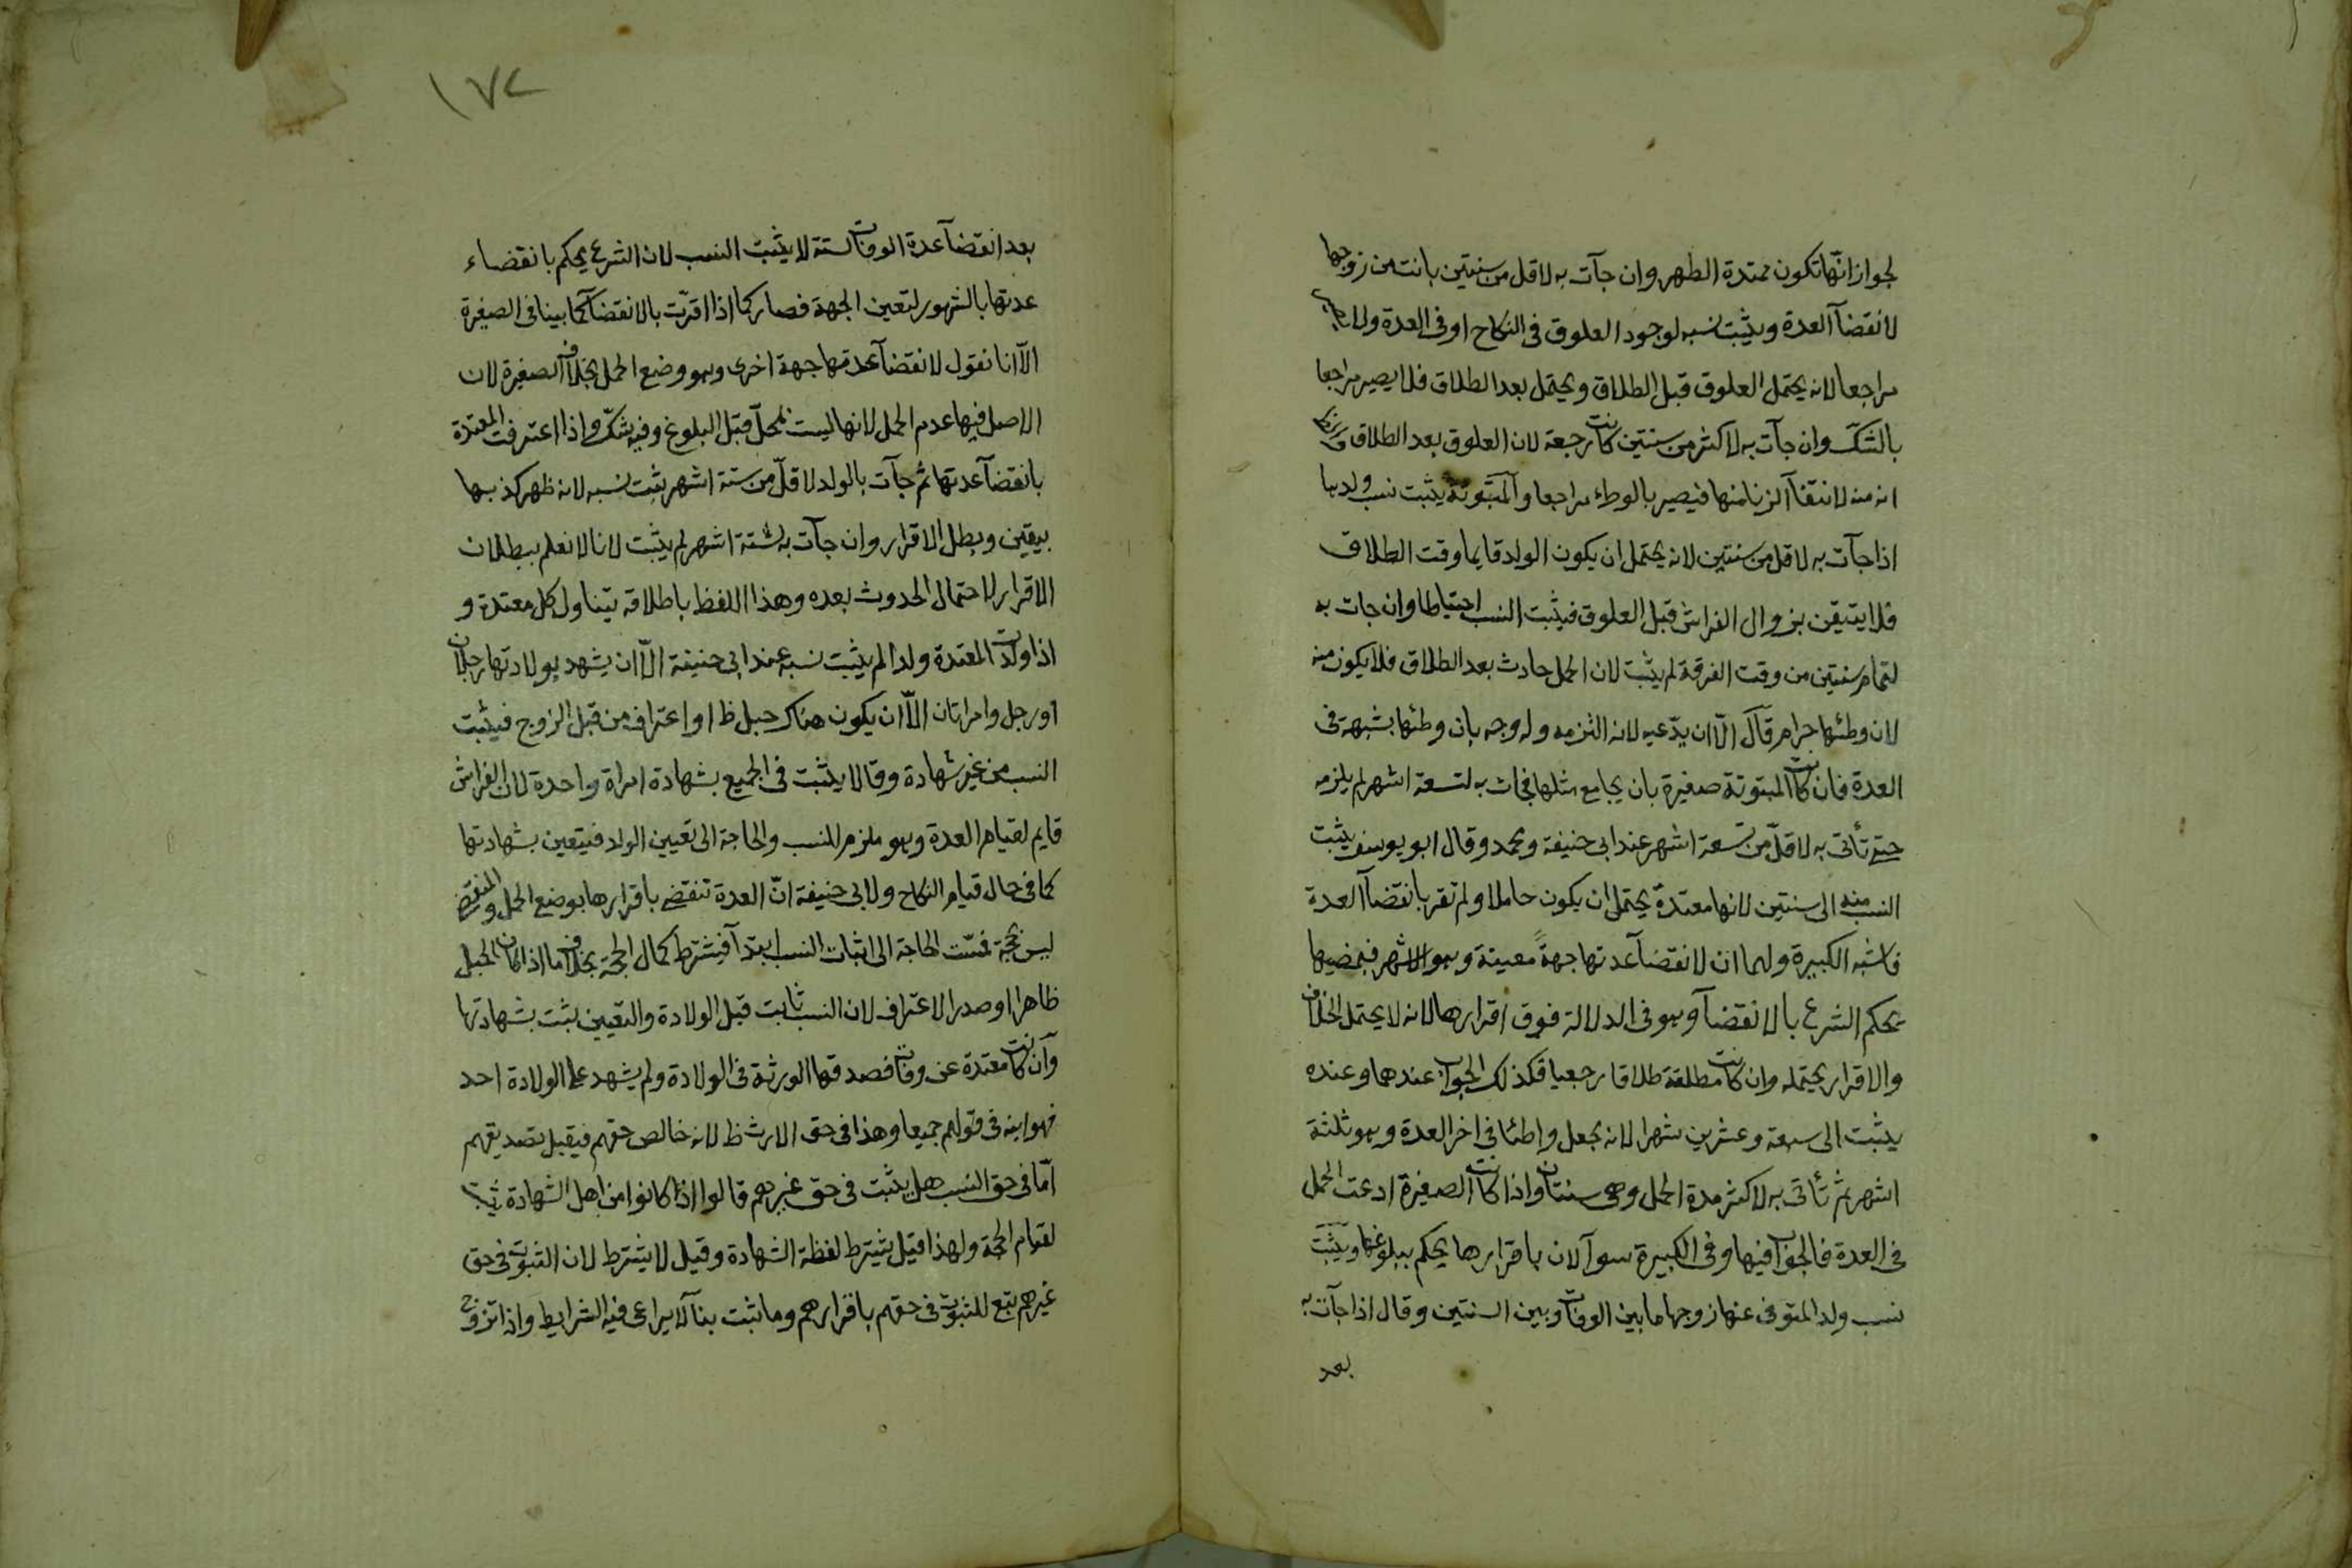 لجواز انّها تكون ممتدة الطهر وان جآت به لاقل من سنتين بانت من زوجها
لانقضآ العدة ويثبت نسبه لوجود العلوق فى النكاح او فى العدة ولا يصير
مراجعا لانه يحتمل العلوق قبل الطلاق ويحتمل بعد الطلاق فلا يصير مراجعا
بالشك وان جآت به لاكثر من سنتين كانت رجعة لان العلوق بعد الطلاق و
انه منه لانتفآ الزنا منها فيصير بالوطء مراجعا والمبتوتة يثبت نسب ولدها
اذا جآت به لاقل من سنتين لانه يحتمل ان يكون الولد قايما وقت الطلاق
فلا يتيقن بزوال الفراش قبل العلوق فيثبت النسب احتياطا وان جات به
لتمام سنتين من وقت الفرقة لم يثبت لان الحمل حادث بعد الطلاق فلا يكون منه
لان وطئها حرام قال الّا ان يدّعيه لانه التزمه وله وجه بان وطئها بشبهة فى
العدة فان كانت المبتوتة صغيرة بان يجامع مثلها فجات به لتسعة اشهر لم يلزمه
حتى تأتى به لاقلّ من تسعة اشهر عند ابى حنيفة ومحمد وقال ابو يوسف يثبت
النسب منه الى سنتين لانها معتدة يحتمل ان يكون حاملا ولم تقر بانقضآ العدة
فاشبه الكبيرة ولهما ان لانقضآ عدتها جهةً معينة وهو الاشهر فبمضيها
يحكم الشرع بالانقضآ وهو فى الدلالة فوق اقرارها لانه لا يحتمل الخلاف
والاقرار يحتمله وان كانت مطلقة طلاقا رجعيا فكذلك الجواب عندهما وعنده
يثبت الى سبعة وعشرين شهرا لانه يجعل واطئا فى اخر العدة وهو ثلثة
اشهر ثم تأتى به لاكثر مدة الحمل وهى سنتان واذا كانت الصغيرة ادعت الحمل
فى العدة فالجواب فيها وفى الكبيرة سوآ لان باقرارها يحكم ببلوغها ويثبت
نسب ولد المتوفى عنها زوجها ما بين الوفات وبين السنتين وقال اذا جآت به
بعد
١٧٢
بعد انقضآ عدة الوفات لستة لا يثبت النسب لان الشرع يحكم بانقضاء
عدتها بالشهور لتعين الجهة فصار كما اذا اقرّت بالانقضآ كما بينا فى الصغيرة
الّا انا نقول لانقضآ عدتها جهة اخرى وهو وضع الحمل بخلاف الصغيرة لان
الاصل فيها عدم الحمل لانها ليست بمحلّ قبل البلوغ وفيه شكّ واذا اعترفت المعتدة
بانقضآ عدتها ثم جآت بالولد لاقلّ من ستة اشهر يثبت نسبه لانه ظهر كذبها
بيقين وبطل الاقرار وان جآت به لستة اشهر لم يثبت لانا لا نعلم ببطلان
الاقرار لاحتمال الحدوث بعده وهذا اللفظ باطلاقه يتناول كل معتدة و
اذا ولدت المعتدة ولدا لم يثبت نسبه عند ابى حنيفة الّا ان يشهد بولادتها رجلان
او رجل وامراتان الّا ان يكون هناك حبل ظ او اعتراف من قبل الزوج فيثبت
النسب من غير شهادة وقالا يثبت فى الجميع بشهادة امراة واحدة لان الفراش
قايم لقيام العدة وهو ملزم للنسب والحاجة الى تعيين الولد فيتعين بشهادتها
كما فى حال قيام النكاح ولابى حنيفة انّ العدة تنقضى باقرارها بوضع الحمل والمنقضى
ليس بحجة فمسّت الحاجة الى اثبات النسب ابتدآ فيشترط كمال الحجة بخلاف ما اذا كان الحبل
ظاهرا او صدر الاعتراف لان النسب ثابت قبل الولادة والتعيين يثبت بشهادتها
وان كانت معتدة عن وفات فصدقها الورثة فى الولادة ولم يشهد على الولادة احد
فهو ابنه فى قولهم جميعا وهذا فى حق الارث ظ لانه خالص حقهم فيقبل تصديقهم
امّا فى حق النسب هل يثبت فى حق غيرهم قالوا اذا كانوا من اهل الشهادة يثبت
لقوام الحجة ولهذا قيل يشترط لفظة الشهادة وقيل لا يشترط لان الثبوت فى حق
غيرهم تبع للثبوت فى حقهم باقرارهم وما ثبت بنآ لا يراعى فيه الشرايط واذا تزوج